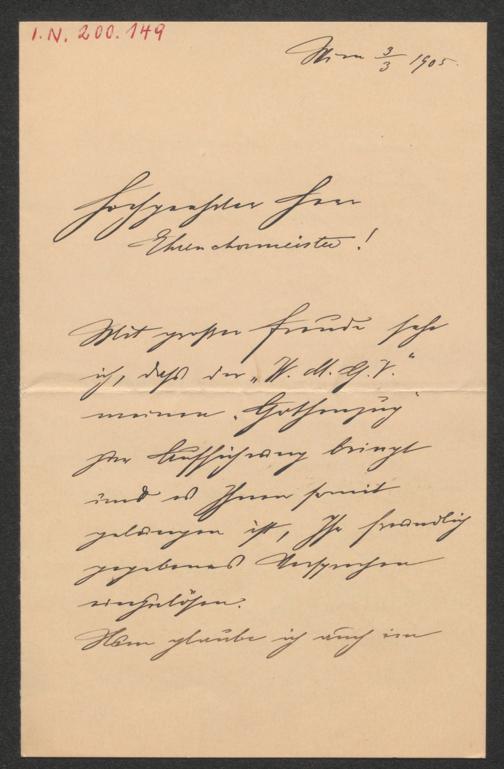 I.N. 200.149
Wien 3/3 1905.
Hochgeehrter Herr
Ehrenchormeister!
Mit großer Freude sehe
ich, daß der „W. M. G. V."
meinen „Gothenzug"
zur Aufführung bringt
und es Ihnen somit
gelungen ist, Ihr freundlich
gegebenes Versprechen
einzulösen.
Nun glaube ich auch im